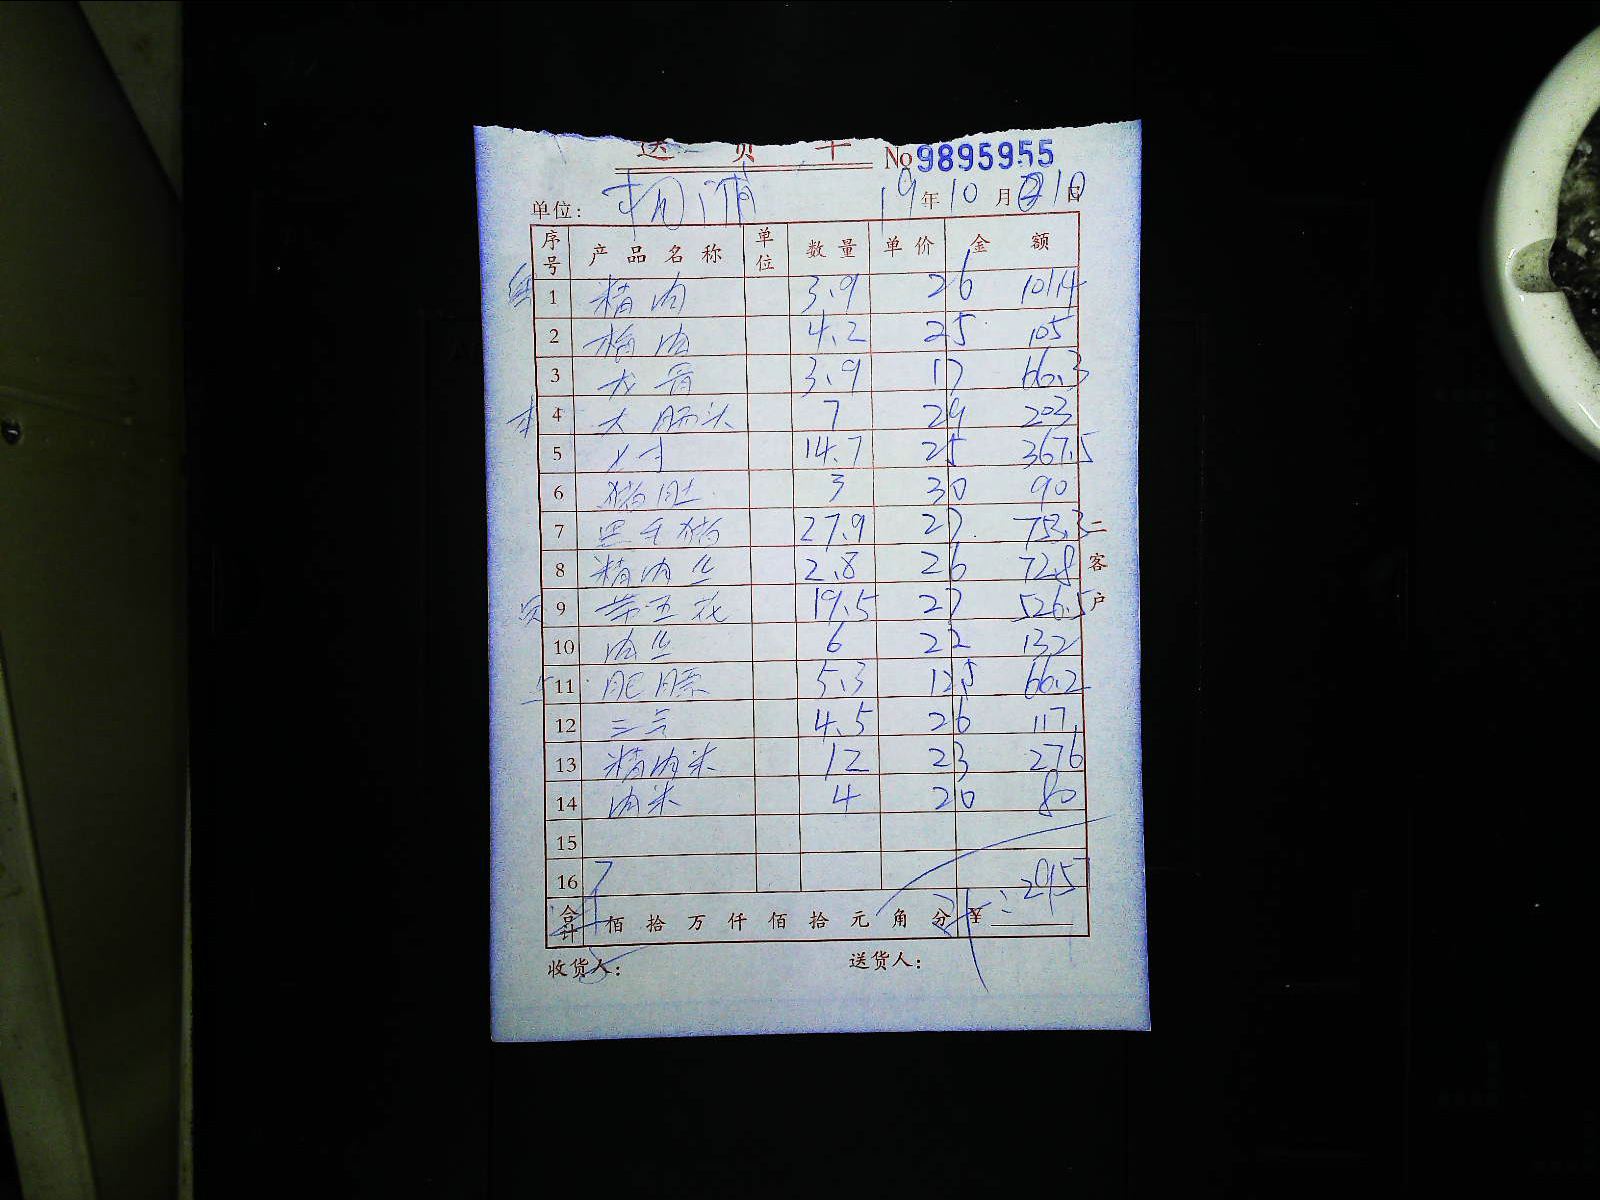 送 货 单 No 9895955
单位: 19年10月10日
序号 产品名称 单位 数量 单价 金 额
1 精肉 3.9 26 101.4
2 梅肉 4.2 25 105
3 龙骨 3.9 17 66.3
4 大肠头 7 29 203
5 14.7 25 367.5
6 猪肚 3 30 90
7 黑毛猪 27.9 27 753.3
8 精肉丝 2.8 26 72.8
9 带五花 19.5 27 526.5
10 肉丝 6 22 132
11 肥膘 5.3 12.5 66.2
12 4.5 26 117
13 精肉米 12 23 276
14 肉米 4 20 80
15
16
合计 佰 拾 万 仟 佰 拾 元 角 分 ¥: 2957
收货人: 送货人:
二客户